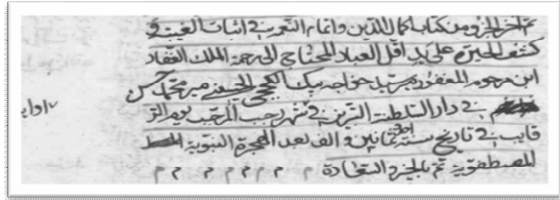 تم آخر الجزو من كتاب اكمال الدين واتمام النعمة في اثبات الغيبة و
كشف الحيرة على يد اقل العباد المحتاج الى رحمة الملك الغفار
ابن مرحوم المغفور سيد خواجه ميرك الحسيني مير محمد حسين
في دار السلطنة التبريز في شهر رجب المرجب يوم الر
في تاريخ سنة ثمانين و الف بعد الهجرة النبوية
المصطفوية تم بالخير و السعادة م م م م م م